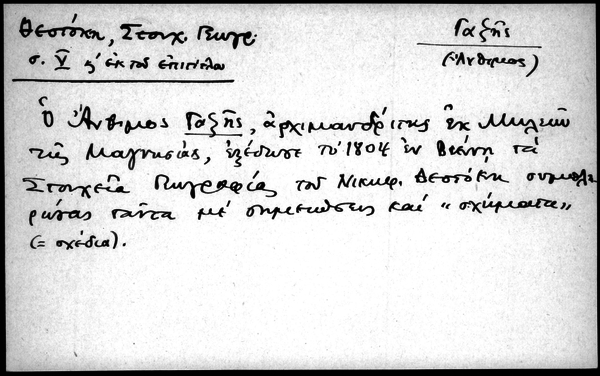 Θεοτόκη, Στοιχ. Γεωγρ.
Γαζῆς
(Ἄνθιμος)
σ. V κ' ἐκ τοῦ ἐπιτίτλου
Ὁ Ἄνθιμος Γαζῆς, ἀρχιμανδρίτης ἐκ Μηλεῶν
τῆς Μαγνησίας, ἐξέδωσε τὸ 1804 ἐν Βιέννῃ τὰ
Στοιχεῖα Γεωγραφίας τοῦ Νικηφ. Θεοτόκη συμπλη
ρώσας ταῦτα μὲ σημειώσεις καὶ "σχήματα"
(= σχέδια).